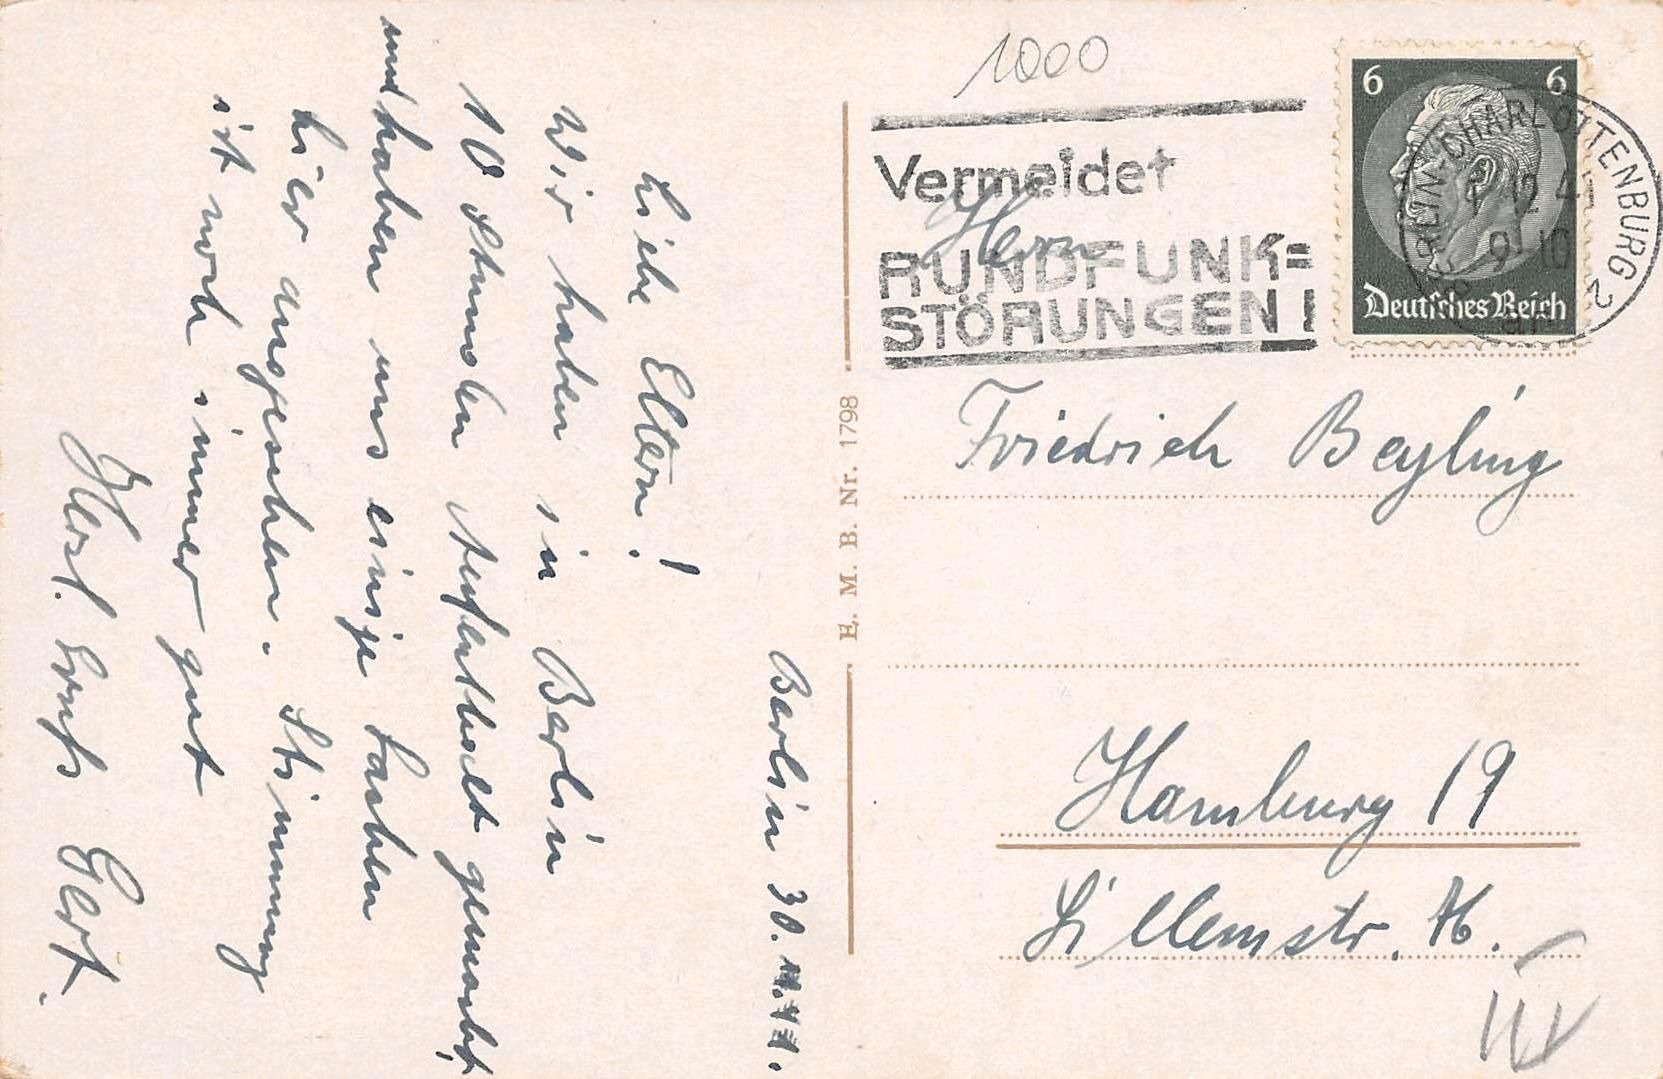 1000
Vermeidet
RUNDFUNK=
STÖRUNGEN!
6 6
Deutsches Reich
BERLIN-CHARLOTTENBURG 2
9-10
Herrn
Friedrich Beyling
Hamburg 19
46.
E. M. B. Nr. 1798
Berlin 30. 11. 41.
Liebe Eltern!
Wir haben in Berlin
10 Stunden Aufenthalt gemacht,
und haben uns einige Sachen
hier angesehen. Stimmung
ist noch immer gut
Herzl. Gruß Gert.